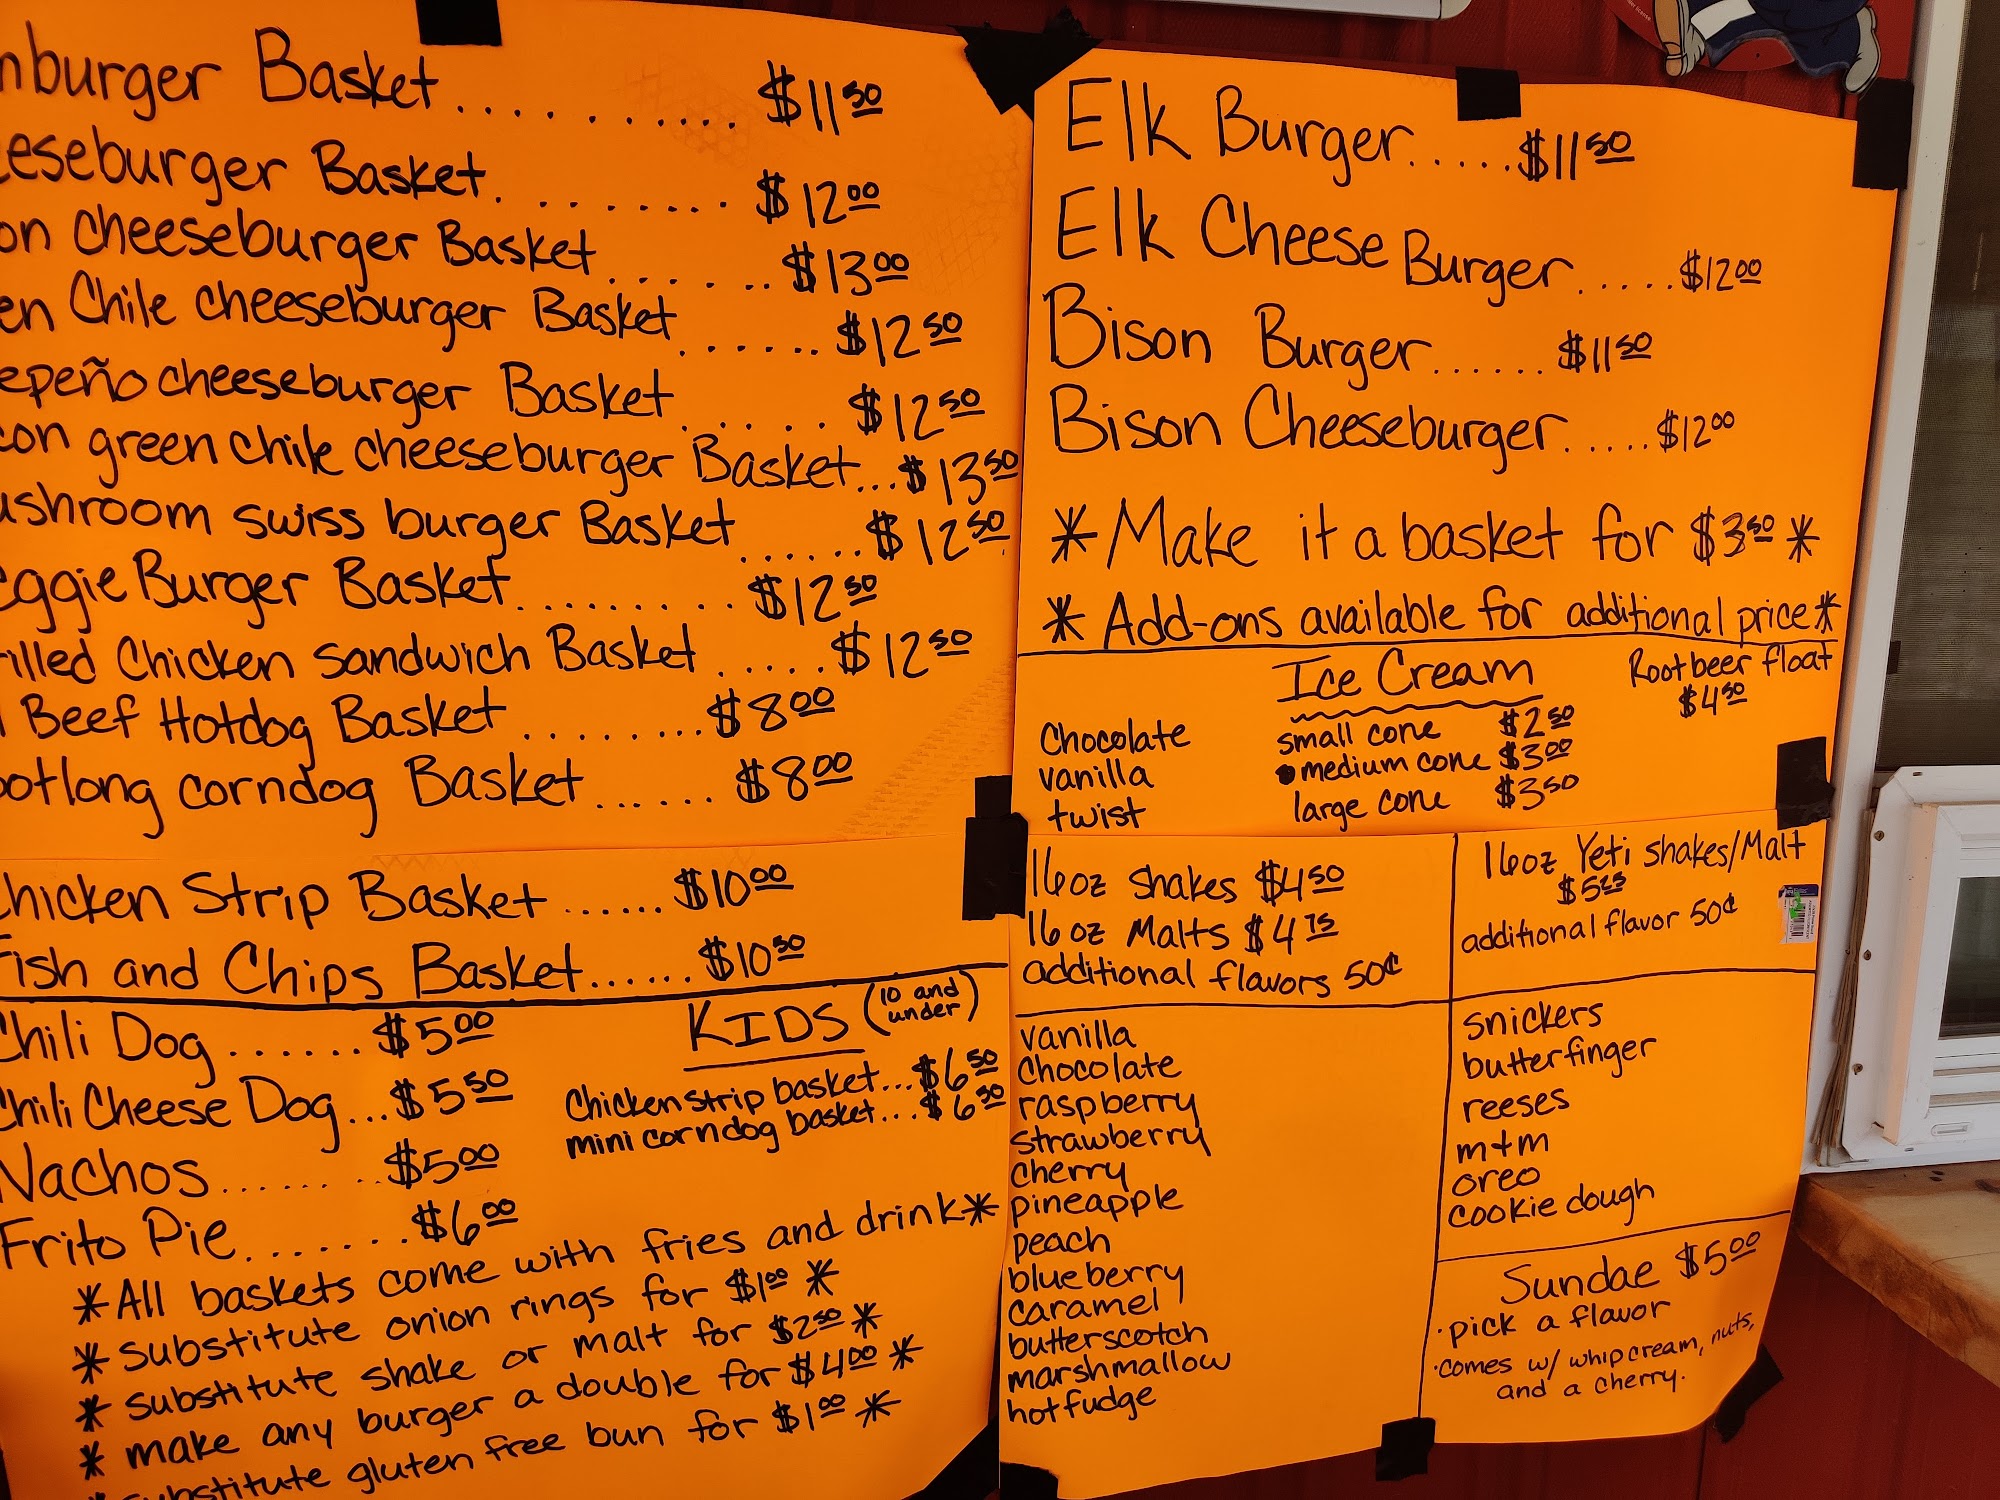 nburger Basket........... $11.50
eeseburger Basket......... $12.00
on cheeseburger Basket....... $13.00
en Chile cheeseburger Basket...... $12.50
epeño cheeseburger Basket...... $12.50
con green chile cheeseburger Basket... $13.50
ushroom swiss burger Basket...... $12.50
eggie Burger Basket......... $12.50
rilled Chicken sandwich Basket..... $12.50
Beef Hotdog Basket........ $8.00
ootlong corndog Basket...... $8.00
Chicken Strip Basket...... $10.00
Fish and Chips Basket...... $10.50
Chili Dog...... $5.00
Chili Cheese Dog... $5.50
Nachos........ $5.00
Frito Pie....... $6.00
KIDS (10 and under)
Chicken strip basket... $6.50
mini corndog basket... $6.50
*All baskets come with fries and drink*
*substitute onion rings for $1.00*
*substitute shake or malt for $2.50*
*make any burger a double for $4.00*
*substitute gluten free bun for $1.00*
Elk Burger..... $11.50
Elk Cheese Burger..... $12.00
Bison Burger...... $11.50
Bison Cheeseburger..... $12.00
*Make it a basket for $3.50*
*Add-ons available for additional price*
Ice Cream
Chocolate
vanilla
twist
small cone $2.50
medium cone $3.00
large cone $3.50
Rootbeer float
$4.50
16oz shakes $4.50
16oz Malts $4.75
additional flavors 50¢
vanilla
chocolate
raspberry
strawberry
cherry
pineapple
peach
blueberry
caramel
butterscotch
marshmallow
hotfudge
16oz Yeti shakes/Malt
$5.25
additional flavor 50¢
snickers
butterfinger
reeses
m+m
oreo
cookie dough
Sundae $5.00
·pick a flavor
·comes w/ whipcream, nuts,
and a cherry.